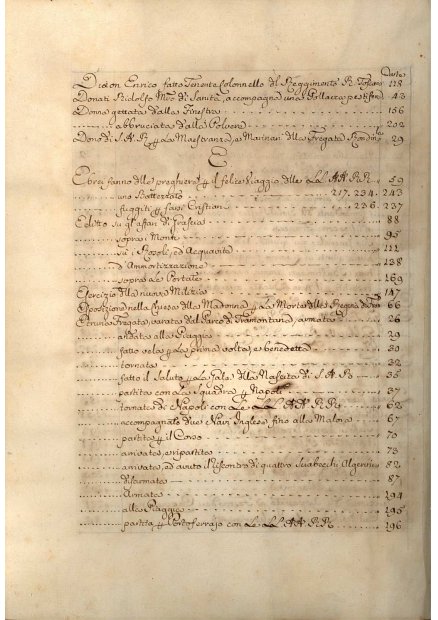 Carte
Dixon Enrico fatto Tenente Colonnello del Reggimento R. Toscano 118
Donati Ridolfo Mro di Sanità, accompagna una Pollacca pestifera 43
Donna gettata dalla Finestra 156
abbruciata dalla Polvere 202
Dono di S. A. R. p la Maestranza, e Marinari della Fregata 29
E
Ebrei fanno delle preghiere p il felice Viaggio delle LL. AA. RR. 59
uno Battezzato 217. 234. 243
fuggiti p farsi Cristiani 236. 237
Editto su gl'affari di Grascia 88
sopra i Monti 95
su i Rosolj, ed Acquavita 111
d'Ammortizzazione 138
sopra le Portate 169
Esercizio della nuova Milizia 147
Esposizione nella Chiesa della Madonna p la Morte della Regina di 66
Etruria Fregata, varata dal Parco di Tramontana, armata 26
andata alla Piaggia 29
fatto vela p la prima volta, e benedetta 30
tornata 32
fatto il Saluto p la Gala della Nascita di S. A. R. 35
partita con la Squadra p Napoli 37
tornata di Napoli con le LL. AA. RR. 62
accompagnato due Navi Inglesi fino alla Malora 67
partita p il Corso 70
arrivata, e ripartita 73
arrivata, ed avuto il riscontro di quattro Sciabecchi Algerini 82
disarmata 87
Armata 194
alla Piaggia 195
partita p Portoferrajo con le LL. AA. RR. 196